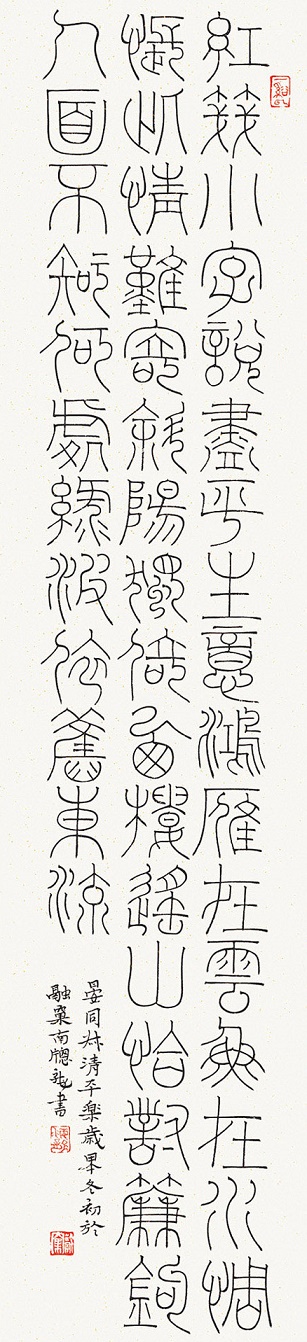 紅箋小字說盡平生意鴻雁在雲魚在水惆
悵此情難寄斜陽獨倚西樓遙山恰對簾鉤
人面不知何處綠波依舊東流
晏同叔清平樂歲冬初於
融巢南牕書